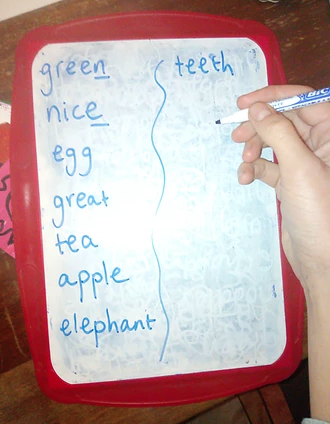 green
nice
egg
great
tea
apple
elephant
teeth
BIC